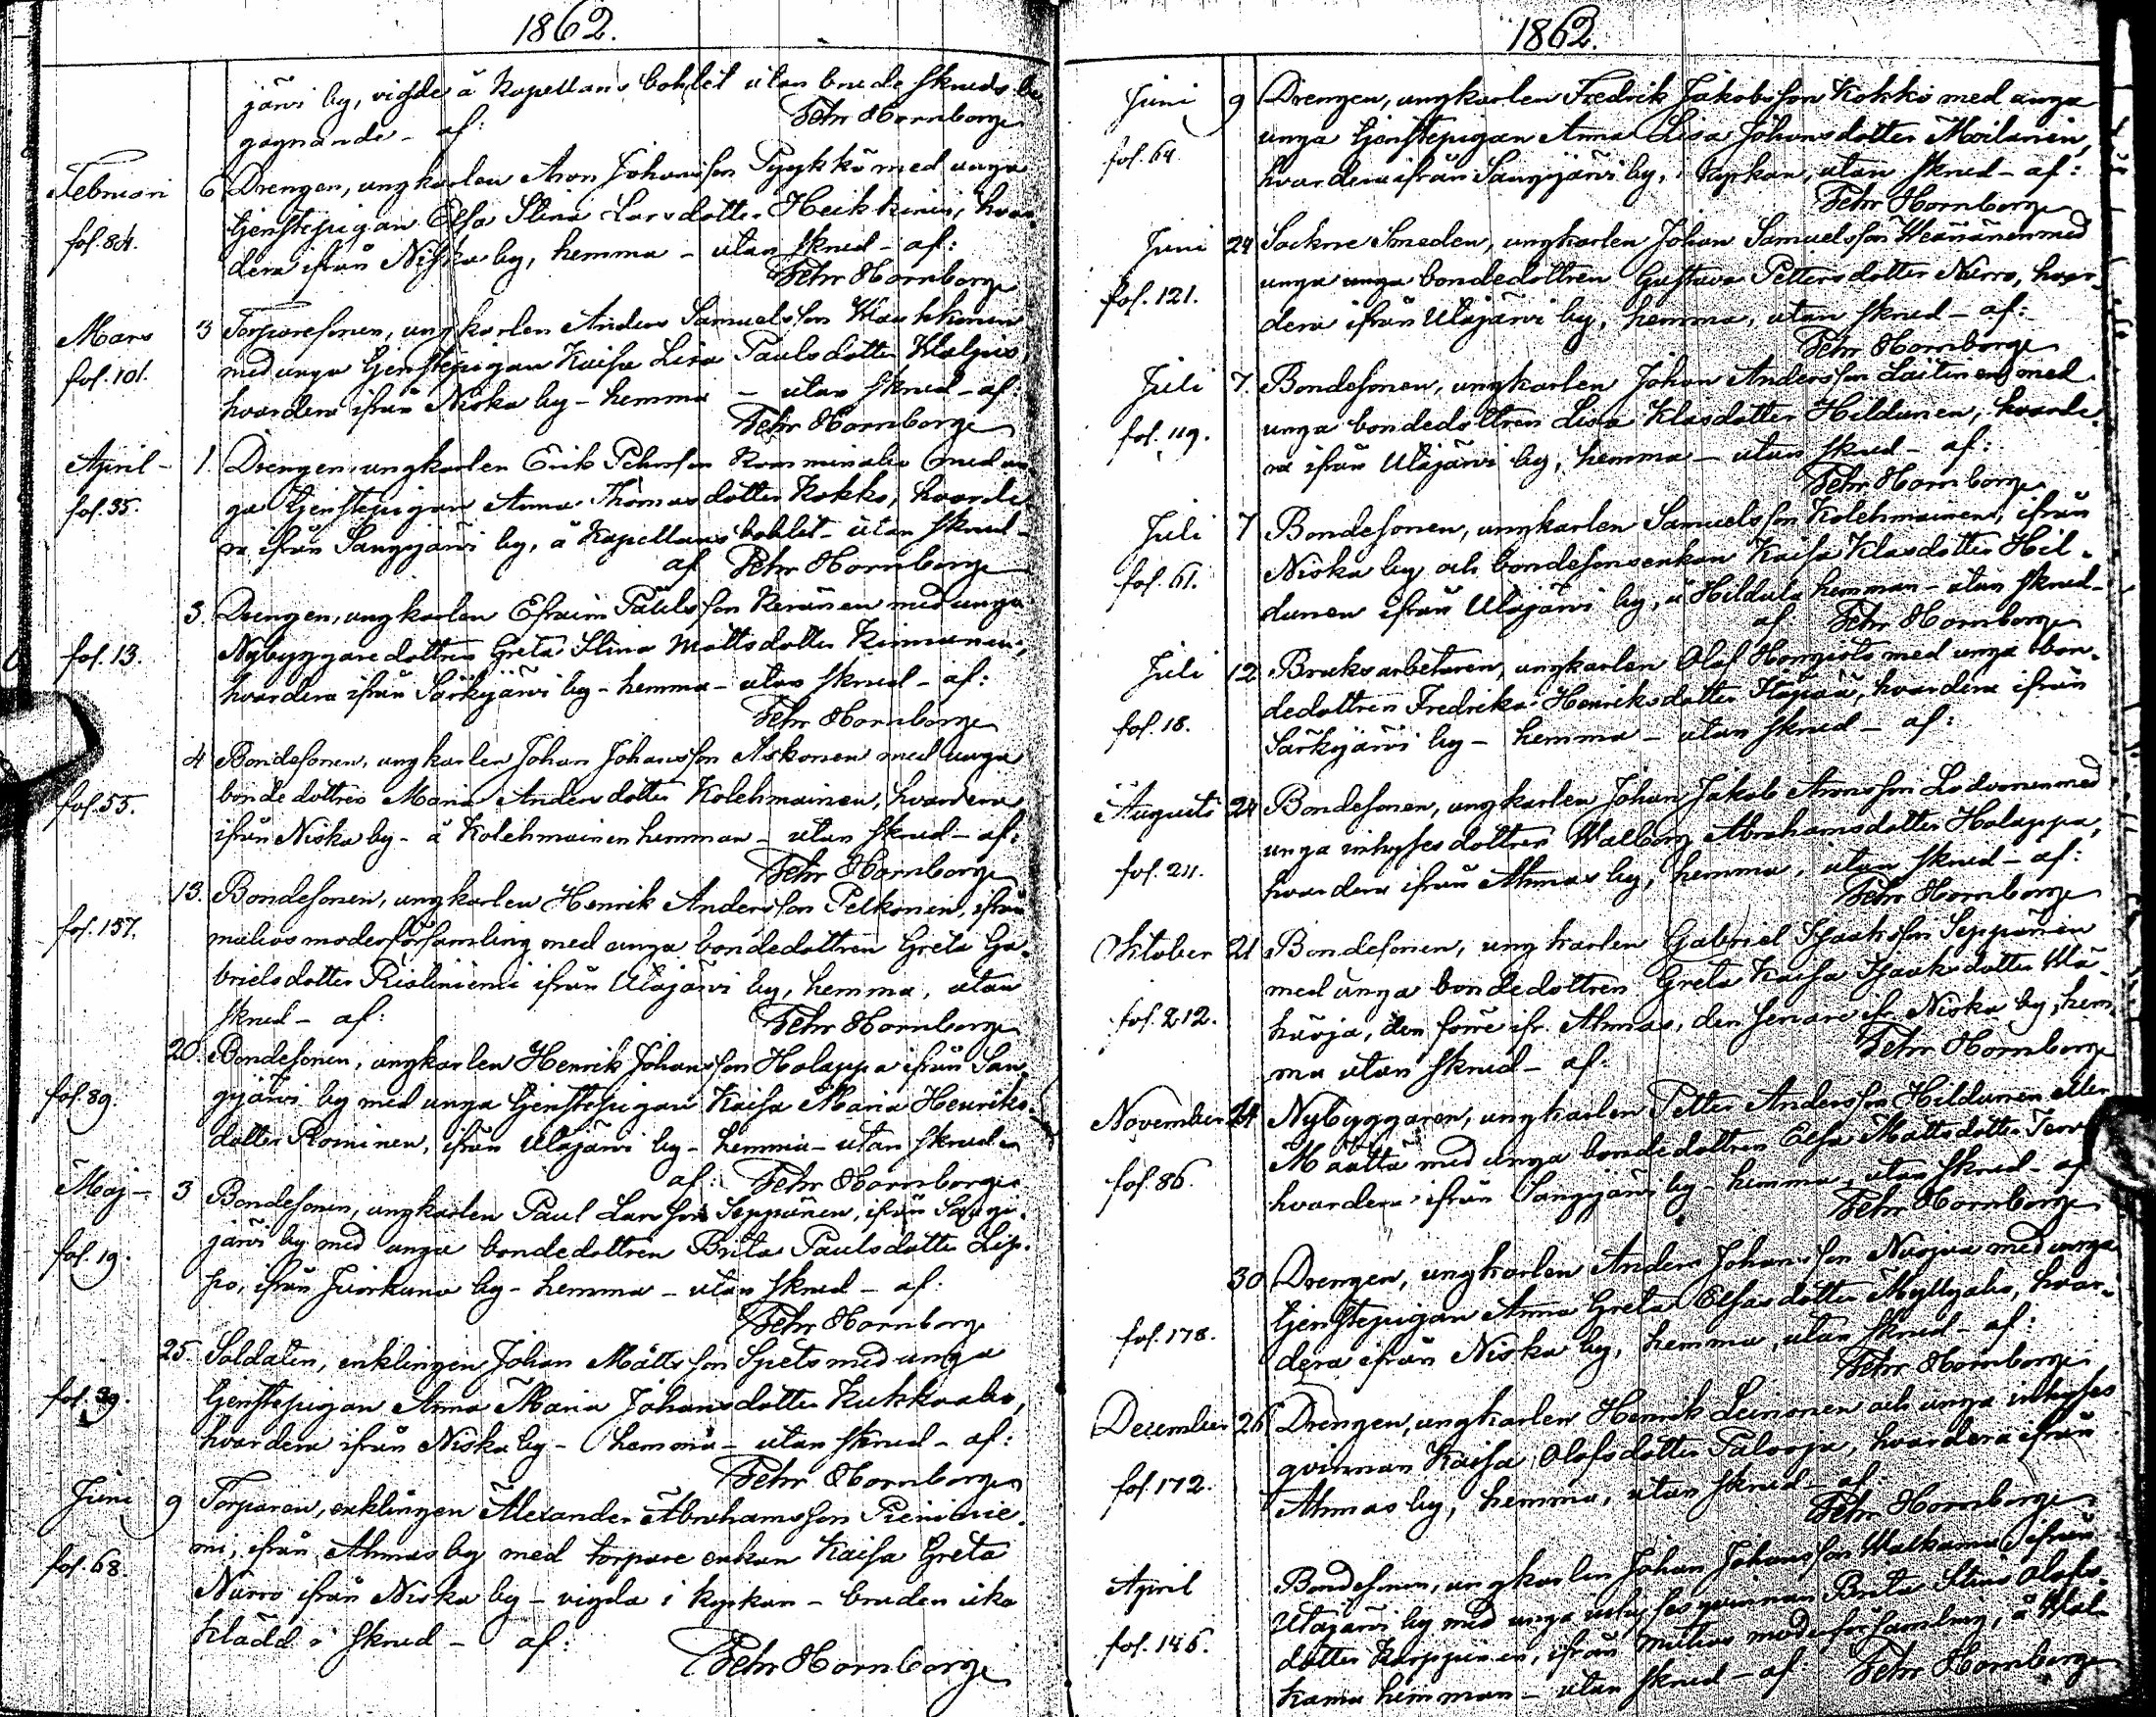 1862.
järvi by, vigde å Kapellans bohlet utan brudeskruds be
gagnande - af:
Pehr Hornborg
Februari 6 Drengen, ungkarlen Aron Johansson Pyykkö med unga
fol. 84. tjenstepigan Elsa Stina Larsdotter Heikkinen, hvar
dera ifrån Niska by, hemma - utan skrud - af:
Pehr Hornborg
Mars 3 Torparesonen, ungkarlen Anders Samuelsson
fol. 101. med unga tjenstepigan Kaisa Lisa Paulsdotter
hvardera ifrån Niska by - hemma - utan skrud - af:
Pehr Hornborg
April - 1. Drengen, ungkarlen Erik Pehrsson med un
fol. 35. ga tjenstepigan Anna Thomasdotter Kokko, hvarde
ra ifrån Sangijärvi by, å Kapellans bohlet - utan skrud -
af Pehr Hornborg
3. Drengen, ungkarlen Efraim Paulsson Keränen med unga
fol. 13. Nybyggaredottren Greta Stina Mattsdotter Kinnunen,
hvardera ifrån Särkijärvi by - hemma - utan skrud - af:
Pehr Hornborg
4 Bondesonen, ungkarlen Johan Johansson Askonen med unga
fol. 55. bondedottren Maria Andersdotter Kolehmainen, hvardera
ifrån Niska by - å Kolehmainen hemman - utan skrud - af:
Pehr Hornborg
13. Bondesonen, ungkarlen Henrik Andersson Pelkonen, ifrån
fol. 157. muhos moderförsamling med unga bondedottren Greta Ga-
brielsdotter Ristiniemi ifrån Utajärvi by, hemma, utan
skrud - af:
Pehr Hornborg
20. Bondesonen, ungkarlen Henrik Johansson Holappa ifrån San
fol. 89. gijärvi by med unga tjenstepigan Kaisa Maria Henriks-
dotter Rominen, ifrån Utajärvi by - hemma - utan skrud -
af: Pehr Hornborg
Maj - 3 Bondesonen, ungkarlen Paul Larsson Seppänen, ifrån Sangi-
fol. 19. järvi by med unga bondedottren Brita Paulsdotter Lip-
po, ifrån Juorkuna by - hemma - utan skrud - af:
Pehr Hornborg
25. Soldaten, enklingen Johan Mattsson Spets med unga
fol. 39. tjenstepigan Anna Maria Johansdotter Kukkoaho,
hvardera ifrån Niska by - hemma - utan skrud - af:
Pehr Hornborg
Juni 9 Torparen, enklingen Alexander Abrahamsson Pieniniе-
fol. 68. mi, ifrån Ahmas by med torpare enkan Kaisa Greta
Nurro ifrån Niska by - vigda i kyrkan - bruden icke
klädd i skrud - af:
Pehr Hornborg
1862.
Juni 9 Drengen, ungkarlen Fredrik Jakobsson Kokko med unga
fol. 64. unga tjenstepigan Anna Lisa Johansdotter Moilanen,
hvardera ifrån Sangijärvi by, i kyrkan, utan skrud - af:
Pehr Hornborg
Juni 24 Sockne Smeden, ungkarlen Johan Samuelsson Väänänen med
fol. 121. unga unga bondedottren Gustava Pettersdotter Nurro, hvar-
dera ifrån Utajärvi by, hemma, utan skrud - af:
Pehr Hornborg
Juli 7. Bondesonen, ungkarlen Johan Andersson Laitinen med
fol. 119. unga bondedottren Lisa Klasdotter Hildunen, hvarde
ra ifrån Utajärvi by, hemma - utan skrud - af:
Pehr Hornborg
Juli 7 Bondesonen, ungkarlen Samuelsson Kolehmainen, ifrån
fol. 61. Niska by och bondesonsenkan Kaisa Klasdotter Hil-
dunen ifrån Utajärvi by, å Hildula hemman - utan skrud -
af Pehr Hornborg
Juli 12 Bruksarbetaren, ungkarlen Olof Hongisto med unga bon-
fol. 18. dedottren Fredrika Henriksdotter Itäpää, hvardera ifrån
Särkijärvi by - hemma - utan skrud - af:
Augusti 24 Bondesonen, ungkarlen Johan Jakob Aronsson Lodvonen med
fol. 211. unga inhysesdottren Walborg Abrahamsdotter Holappa,
hvardera ifrån Ahmas by, hemma, utan skrud - af:
Pehr Hornborg
Oktober 21 Bondesonen, ungkarlen Gabriel Isaaksson Seppänen
fol. 212. med unga bondedottren Greta Kaisa Isaaksdotter Wä-
härja, den förre ifr. Ahmas, den senare ifr. Niska by, hem-
ma utan skrud - af:
Pehr Hornborg
November 24 Nybyggaren, ungkarlen Petter Andersson Hildunen eller
fol. 86. Määttä med unga bondedottren Elsa Mattsdotter
hvardera ifrån Sangijärvi by - hemma, utan skrud - af
Pehr Hornborg
30 Drengen, ungkarlen Anders Johansson Nuojua med unga
fol. 178. tjenstepigan Anna Greta Eliasdotter Myllyaho, hvar-
dera ifrån Niska by, hemma, utan skrud - af:
Pehr Hornborg
December 26 Drengen, ungkarlen Henrik Leinonen och unga inhyses
fol. 172. qvinnan Kaisa Olofsdotter Talooja, hvardera ifrån
Ahmas by, hemma, utan skrud - af
Pehr Hornborg
April Bondesonen, ungkarlen Johan Johansson Walkama ifrån
fol. 146. Utajärvi by med unga inhysesqvinnan Brita Stina Olofs-
dotter Karppinen, ifrån muhos moderförsamling, å Wal-
kama hemman - utan skrud - af: Pehr Hornborg